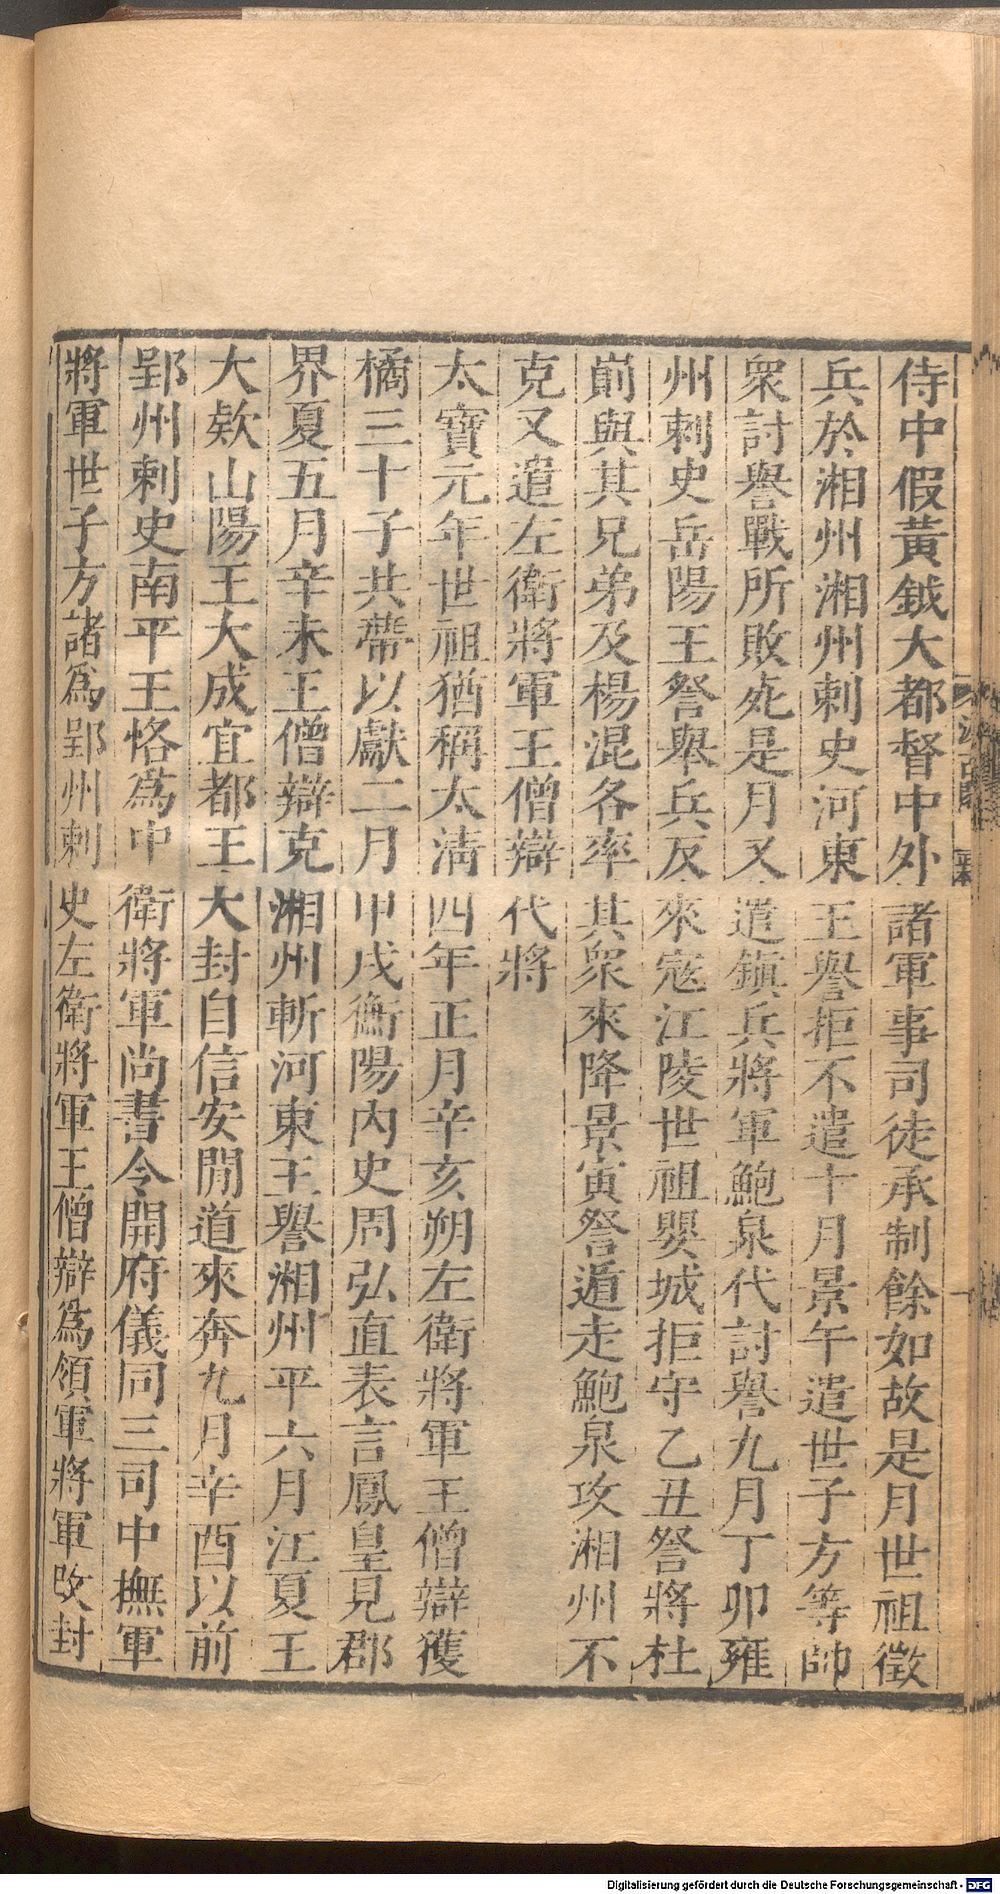 侍中假黃鉞大都督中外諸軍事司徒承制餘如故是月世祖徵
兵於湘州湘州刺史河東王譽拒不遣十月景午遣世子方等帥
衆討譽戰所敗死是月又遣鎮兵將軍鮑泉代討譽九月丁卯雍
州刺史岳陽王詧舉兵反來寇江陵世祖嬰城拒守乙丑詧將杜
崱與其兄弟及楊混各率其衆來降景寅詧遁走鮑泉攻湘州不
克又遣左衛將軍王僧辯代將
太寶元年世祖猶稱太淸四年正月辛亥朔左衛將軍王僧辯獲
橘三十子共蔕以獻二月甲戌衡陽內史周弘直表言鳳皇見郡
界夏五月辛未王僧辯克湘州斬河東王譽湘州平六月江夏王
大欵山陽王大成宜都王大封自信安間道來奔九月辛酉以前
郢州刺史南平王恪爲中衛將軍尚書令開府儀同三司中撫軍
將軍世子方諸爲郢州刺史左衛將軍王僧辯爲領軍將軍改封
Digitalisierung gefördert durch die Deutsche Forschungsgemeinschaft - DFG